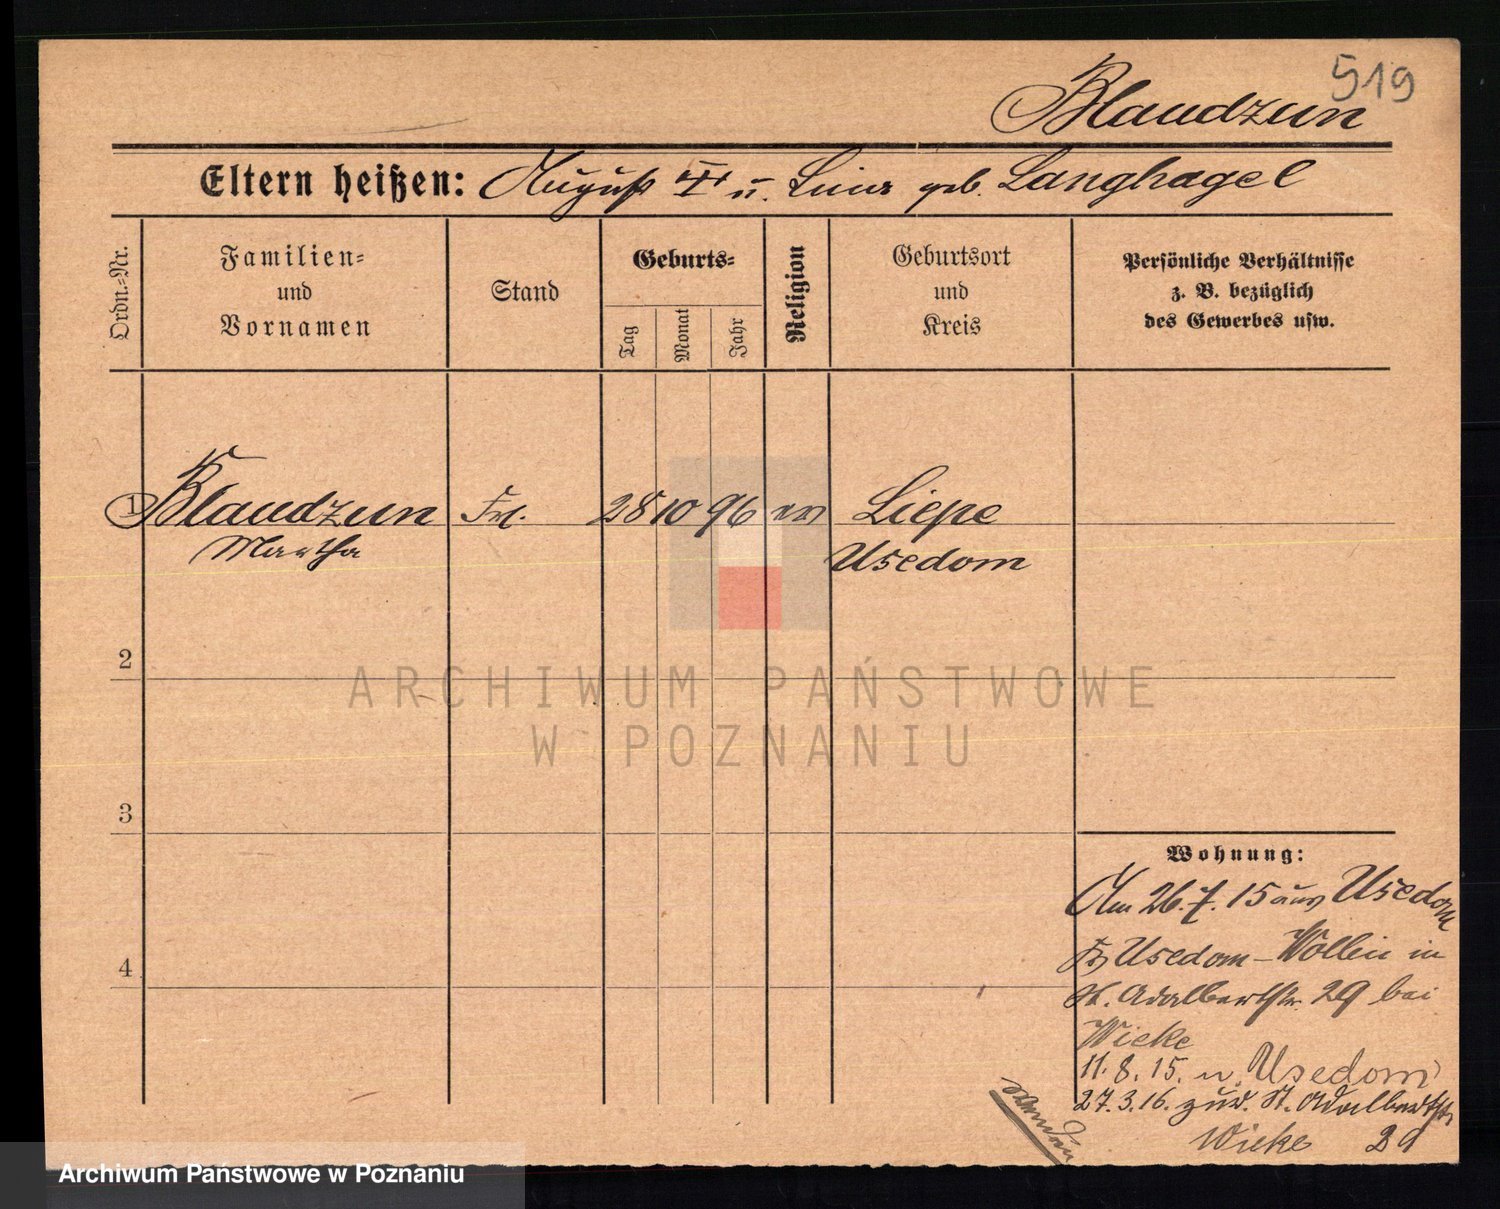 519
Blaudzun
Eltern heißen: August u. Lina geb. Langhagel
Ordn.-Nr.
Familien-
und
Vornamen
Stand
Geburts-
Tag
Monat
Jahr
Religion
Geburtsort
und
Kreis
Persönliche Verhältnisse
z. B. bezüglich
des Gewerbes usw.
1 Blaudzun Frl. 28 10 96 ev Liepe
Martha Usedom
2
ARCHIWUM PAŃSTWOWE
W POZNANIU
3
Wohnung:
Am 26.7.15 aus Usedom
Usedom-Wollin in
St. Adalbertstr. 29 bei
Wieke
11.8.15. n. Usedom
27.3.16. zur. St. Adalbertstr.
Wieke 29
4
wenden
Archiwum Państwowe w Poznaniu